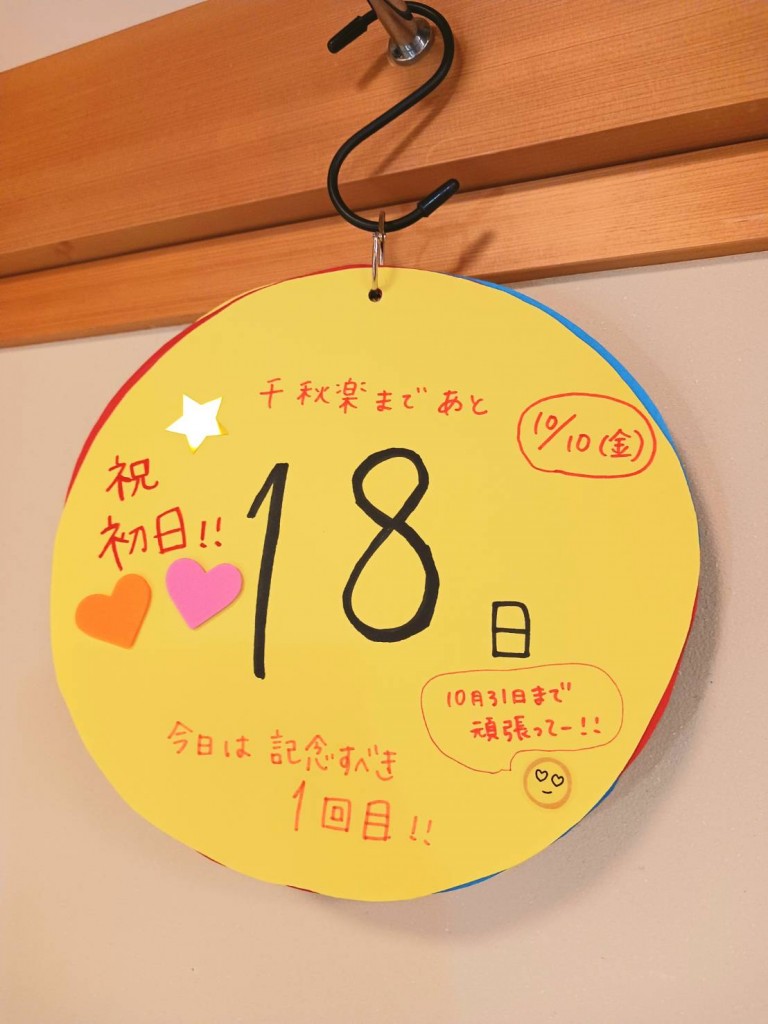 千秋楽まであと
10/10(金)
祝
初日!!
18日
10月31日まで
頑張ってー!!
今日は記念すべき
1回目!!